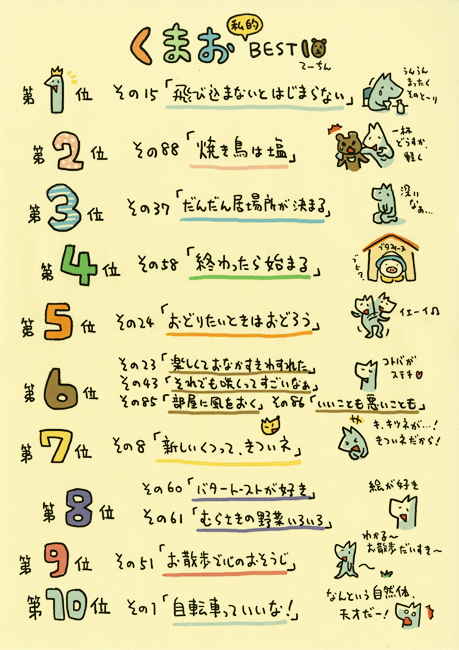 くまお 私的 BEST10
てーちん
第1位 その15「飛び込まないとはじまらない」
うんうん
まったく
そのとーり
第2位 その88「焼き鳥は塩」
一杯
どうすか、
軽く
第3位 その37「だんだん居場所が決まる」
深い
なぁ…
第4位 その58「終わったら始まる」
第5位 その24「おどりたいときはおどろう」
イエーイ♫
第6位
その23「楽しくておなかすきわすれた」
その43「それでも咲くってすごいなぁ」
その85「部屋に風をおく」その86「いいことも悪いことも」
コトバが
ステキ♥
第7位 その8「新しいくつって、きついネ」
き、キツネが…!
きついネだから!
第8位
その60「バタートーストが好き」
その61「むらさきの野菜いろいろ」
絵が好き
第9位 その51「お散歩で心のおそうじ」
わかる〜
お散歩だいすき〜
第10位 その1「自転車っていいな!」
なんという自然体、
天才だー!